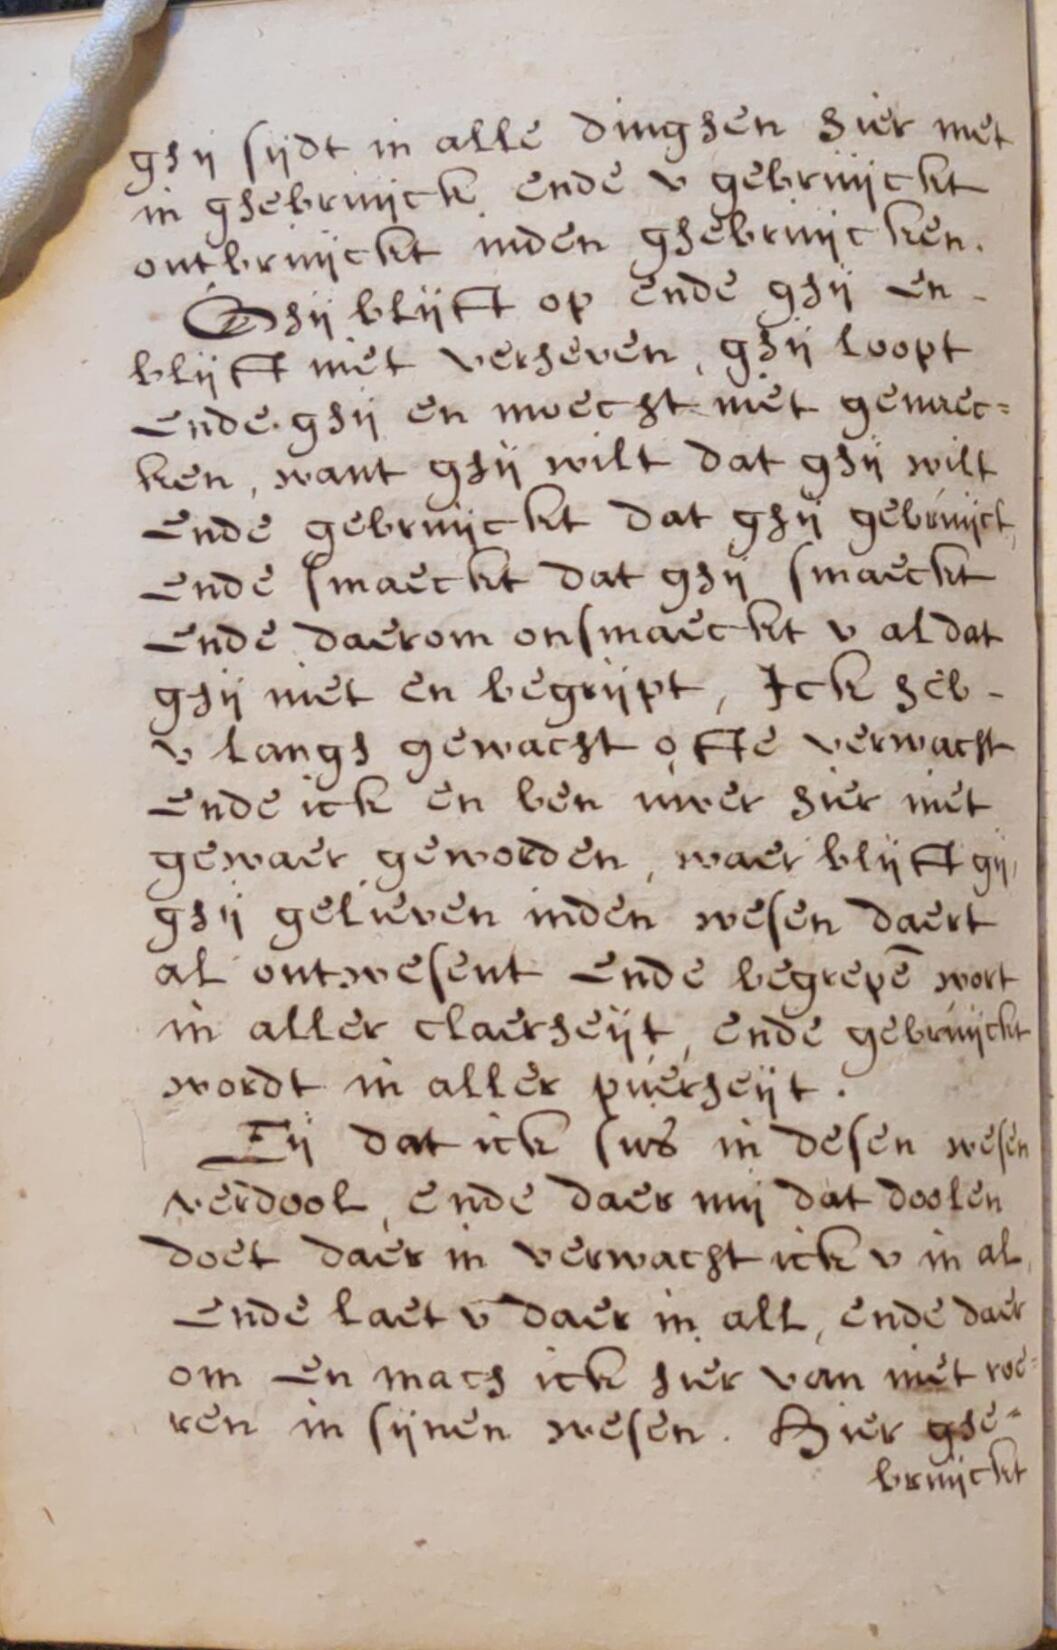 ghij sijdt in alle dinghen hier met
in ghebruijck, ende v gebruijckt
ontbruijckt inden ghebruijcken.
Ghij blijft op ende ghij en -
blijft niet verheven, ghij loopt
ende ghij en moecht niet genaec=
ken, want ghij wilt dat ghij wilt
ende gebruijckt dat ghij gebruijct,
ende smaeckt dat ghij smaeckt
ende daerom onsmaeckt v al dat
ghij niet en begrijpt, Ick heb -
v langh gewacht ofte verwacht
ende ick en ben uwer hier niet
gewaer geworden, waer blijft gij,
ghij gelieven inden wesen daert
al ontwesent ende begrepē wort
in aller claerheijt, ende gebruijckt
wordt in aller puerheijt.
Eij dat ick sus in desen wesen
verdool, ende daer mij dat doolen
doet daer in verwacht ick v in al,
ende laet v daer in all, ende daer
om en mach ick hier van niet roe=
ren in sijnen wesen. Hier ghe=
bruijckt